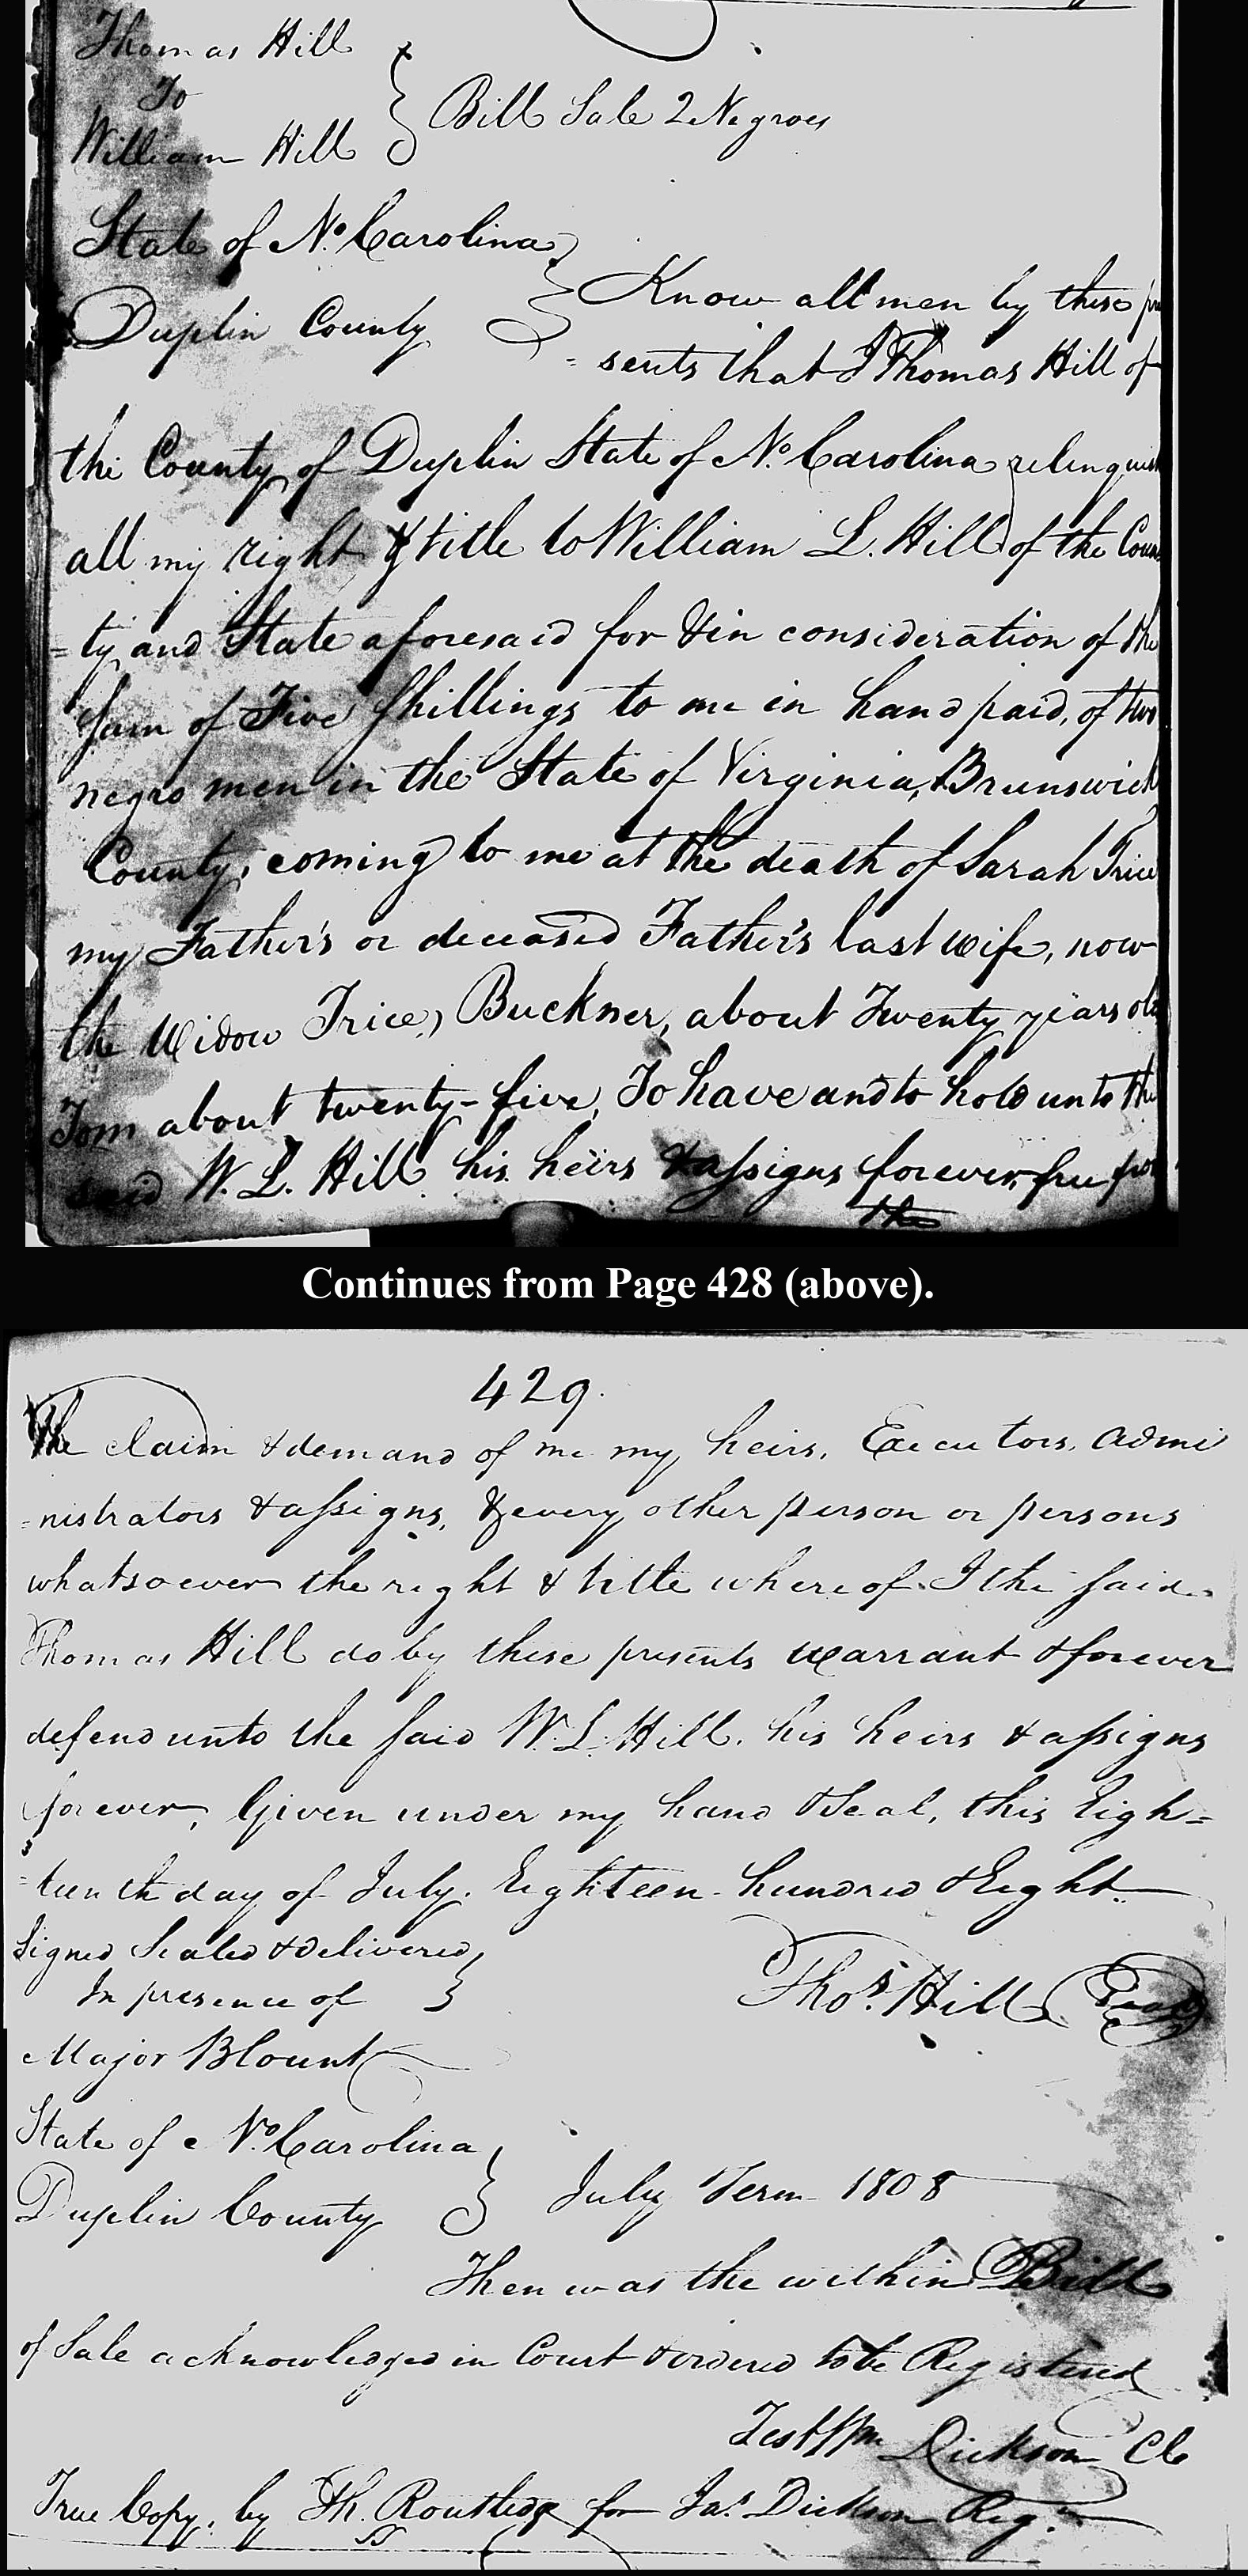 Thomas Hill
To
William Hill
Bill Sale 2 Negroes
State of No. Carolina
Duplin County
Know all men by these pre
= sents that I Thomas Hill of
the County of Duplin State of No. Carolina relinquish
all my right & title to William L. Hill of the Coun
=ty and State aforesaid for & in consideration of the
sum of Five Shillings to me in hand paid, of two
negro men in the State of Virginia, Brunswick
County, coming to me at the death of Sarah Trice
my Father's or deceased Father's last wife, now
the Widow Trice, Buckner, about Twenty years old
Tom about twenty-five, To have and to hold unto the
said W. L. Hill his heirs & assigns forever, free from
the
Continues from Page 428 (above).
429.
The claim & demand of me my heirs, Executors, Admi
=nistrators & assigns, & every other person or persons
whatsoever the right & title whereof I the said
Thomas Hill do by these presents warrant & forever
defend unto the said W. L. Hill, his heirs & assigns
forever, Given under my hand & Seal, this Eigh=
=teenth day of July, Eighteen hundred & Eight
Signed Sealed & delivered
In presence of
Thos. Hill Seal
Major Blount
State of No. Carolina
Duplin County
July Term 1808
Then was the within Bill
of Sale acknowledged in Court & ordered to be Registered
Test Wm Dickson Clk
True Copy, by Th. Routledge for Jas. Dickson Regr.